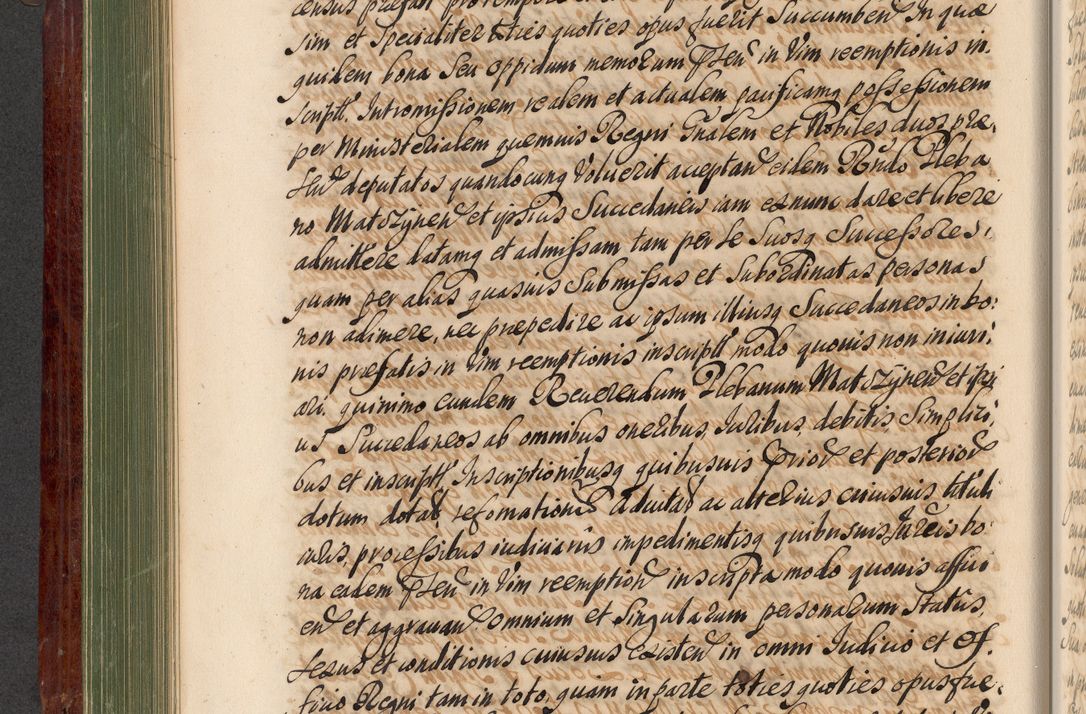 census præfati pro tempore
sim et Specialiter toties quoties opus fuerit Succumben In quæ
quidem bona Seu oppidum memoratum Psen in Vim reemptionis in
script Intromissionem realem et actualem pacificamq possessionem
per Ministerialem quemuis Regni Gnalem et Nobiles duos præ,
sen deputatos quandocunq Voluerit acceptan eidem Rndo Pleba
no Matczÿnen et ipsius Succedaneis iam ex nunc dare et libere
admittere datamq et admissam tam per se Suosq Successores,
quam per alias quasuis Submissas et Subordinatas personas
non adimere, nec præpedire ac ipsum illiusq Succedaneos in bo:
nis præfatis in Vim reemptionis inscript modo quouis non iniuri:
ari, quinimo eundem Reuerendum Plebanum Matczÿnen et ipsi
us Succedaneos ab omnibus oneribus, Juribus, debitis Simplici,
bus et inscript Inscriptionibusq quibusuis Prior et posterior
dotum dotal refomation aduital ac alterius cuiusuis tituli
aris, processibus iudiciariis impedimentisq quibusuis Jureis bo:
na eadem Psen in Vim reemption inscripta modo quouis affici
en et aggrauan omnium et Singularum personarum Status,
sexus et conditionis cuiusuis existen in omni Iudicio et Of,
ficio Regni tam in toto, quam in parte toties quoties opus fue,